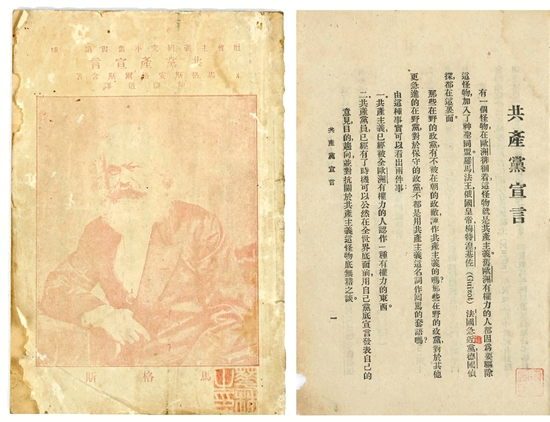 社會主義研究小叢書第一種
共黨產宣言
馬格斯安格爾斯合著
陳望道譯
馬格斯
共產黨宣言
有一個怪物，在歐洲徘徊着，這怪物就是共產主義。舊歐洲有權力的人都因爲要驅除
這怪物，加入了神聖同盟。羅馬法王，俄國皇帝，梅特湼，基佐（Guizot），法國急進黨，德國偵
探，都在這裏面。
那些在野的政黨，有不被在朝的政敵，誣作共產主義的嗎？那些在野的政黨，對於其他
更急進的在野黨，對於保守的政黨，不都是用共產主義這名詞作回罵的套語嗎？
由這種事實可以看出兩件事：
一、共產主義，已經被全歐洲有權力的人認作一種有權力的東西。
二、共產黨員，已經有了時機可以公然在全世界底面前，用自己黨底宣言發表自己的
意見，目的，趨向，並對抗關於共產主義這怪物底無稽之談。
共產黨宣言
一